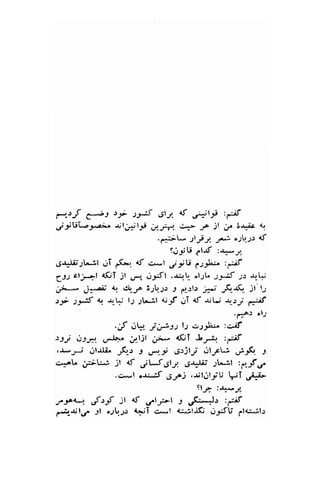 گفتم: قوانینی که برای کشور خود وضع کردیم
به عقیدهٔ من از هر حیث بهترین قوانین‌اند مخصوصاً قانونی
که درباره شعر برقرار ساختیم.
پرسید: کدام قانون؟
گفتم: منظورم قانونی است که بحکم آن اشعار تقلیدی
نباید در کشور ما راه یابند. اکنون پس از آنکه اجزاء روح
را از یکدیگر تمیز دادیم و درباره هریک به تفصیل سخن
گفتیم تردید نماند که آن گونه اشعار را نباید به کشور خود
راه دهیم.
گفت: منظورت را روشن‌تر بیان کن.
گفتم: بشرط آنکه سخن ازاین مجلس بیرون نرود
و بگوش شاعران تراژدی نویس و دیگر مقلدان نرسد،
می‌گویم: اشعار تقلیدی برای کسانی که از شناختن ماهیت
حقیقی آنها ناتوان‌اند، زهری کشنده است.
پرسید: چرا؟
گفتم: دلبستگی و احترامی که از کودکی به هومر
داشته‌ام تاکنون نگذاشته است آنچه درباره او می‌اندیشم